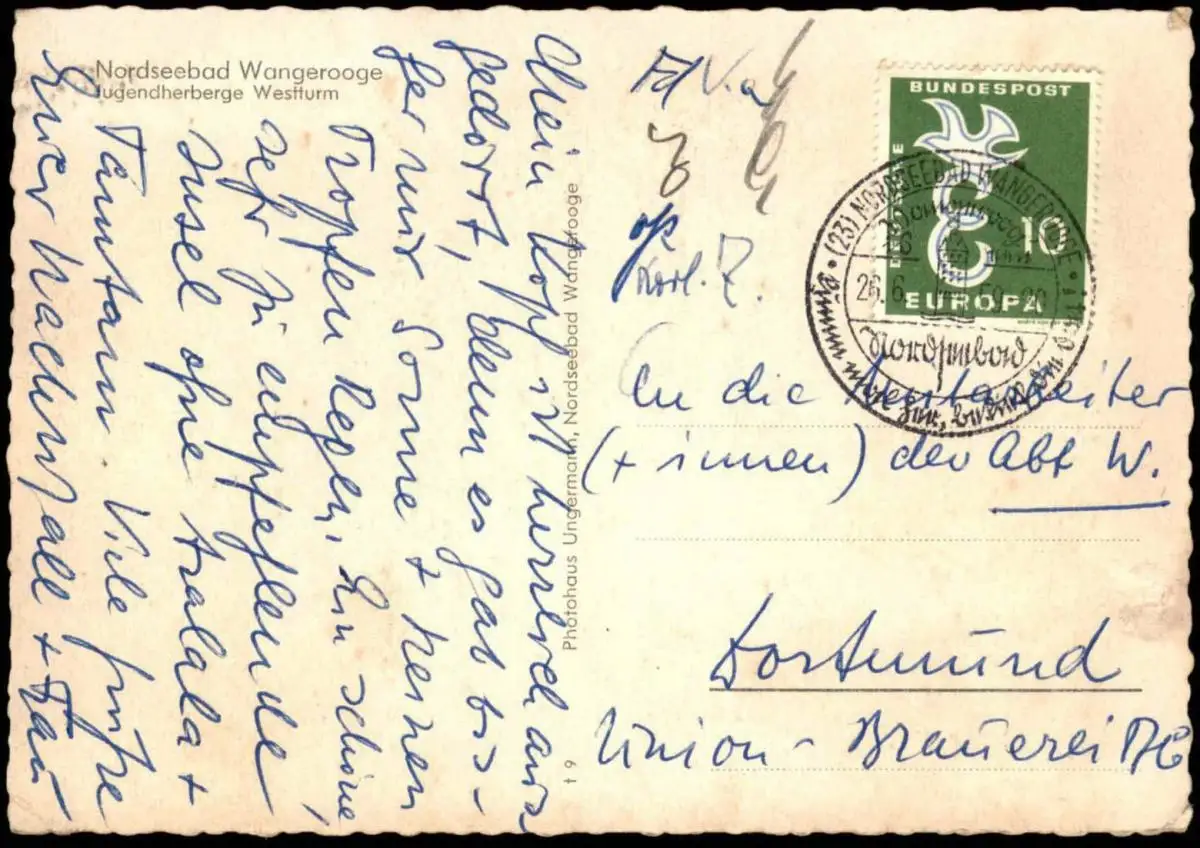 Nordseebad Wangerooge
Jugendherberge Westturm
Mein Kopf ist herrlich aus
gedörrt, denn es gab bis-
her nur Sonne + keinen
Tropfen Regen. Ein schöne,
sehr zu empfehlende
Insel ohne tralala +
Tamtam. Viele Grüße
Euer Wachwitzall + Frau
Photohaus Ungermann, Nordseebad Wangerooge
t 9
DEUTSCHE
BUNDESPOST
10
EUROPA
(23) NORDSEEBAD WANGEROOGE
26.6.59-20
Nordseebad
An die
(+ innen) der Abt W.
Dortmund
Union-Brauerei AG